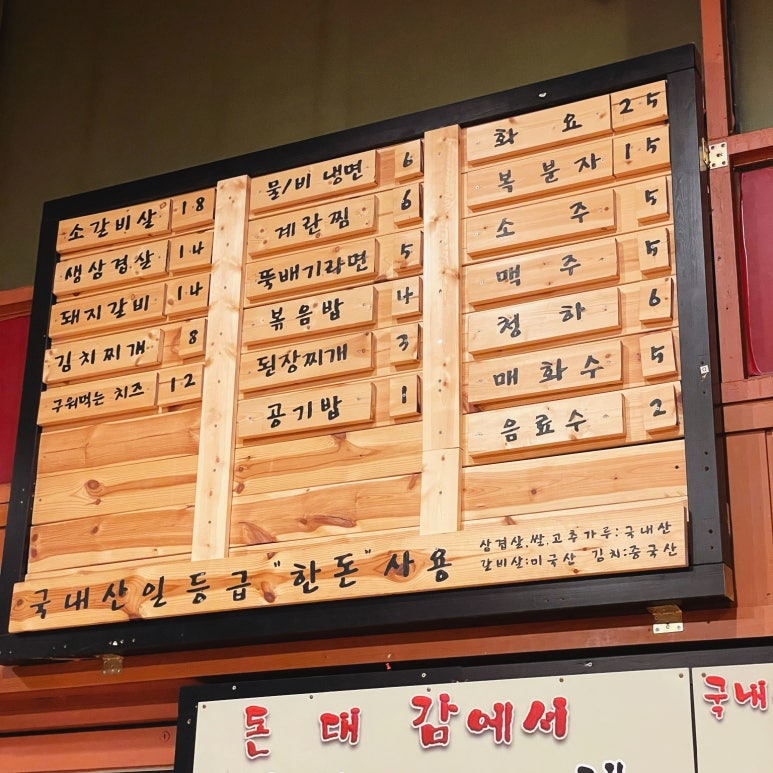 소갈비살 18
생삼겹살 14
돼지갈비 14
김치찌개 8
구워먹는 치즈 12
물/비 냉면 6
계란찜 6
뚝배기라면 5
볶음밥 4
된장찌개 3
공기밥 1
화요 25
복분자 15
소주 5
맥주 5
청하 6
매화수 5
음료수 2
국내산 일등급 "한돈" 사용
삼겹살,쌀,고추가루:국내산
갈비살:미국산 김치:중국산
돈대감에서
국내